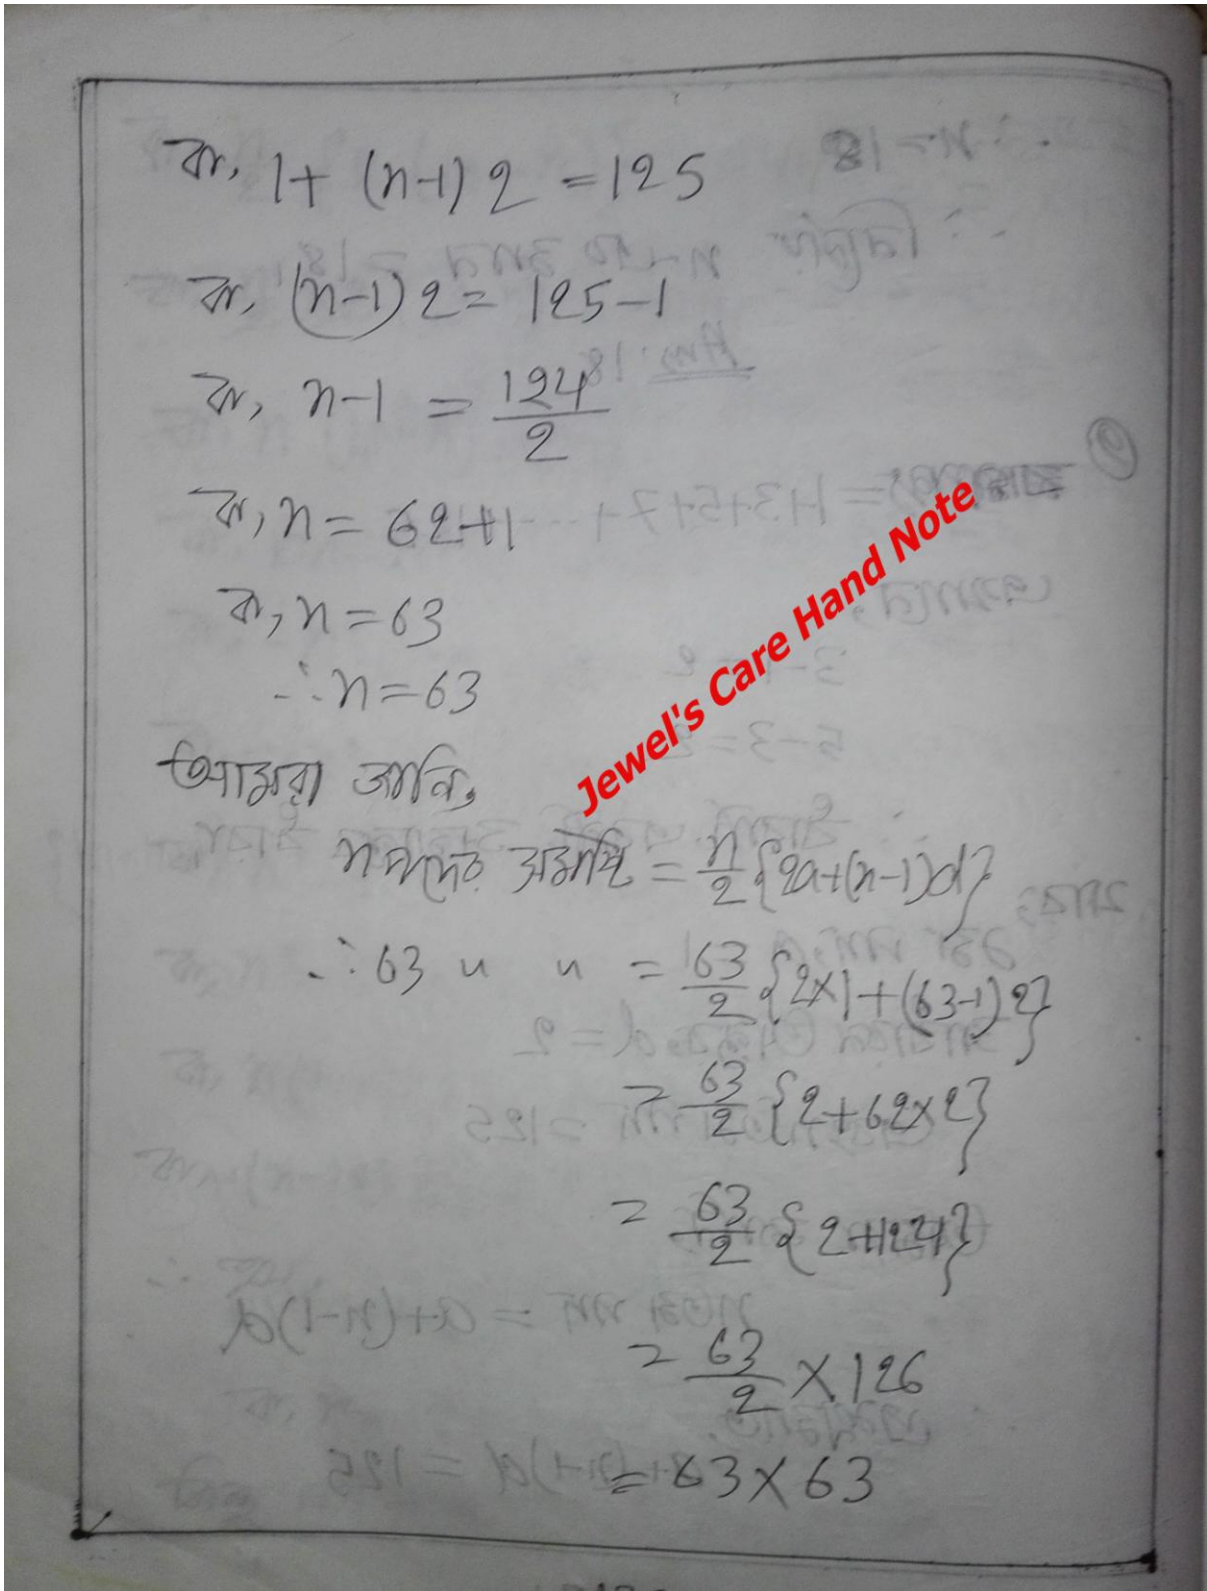 বা, 1+ (n-1) 2 = 125
বা, (n-1) 2 = 125-1
বা, n-1 = 124/2
বা, n = 62+1
বা, n = 63
∴ n = 63
আমরা জানি,
n পদের সমষ্টি = n/2 {2a+(n-1)d}
∴ 63 " " = 63/2 {2×1+(63-1)2}
= 63/2 {2+62×2}
= 63/2 {2+124}
= 63/2 × 126
= 63 × 63
Jewel's Care Hand Note